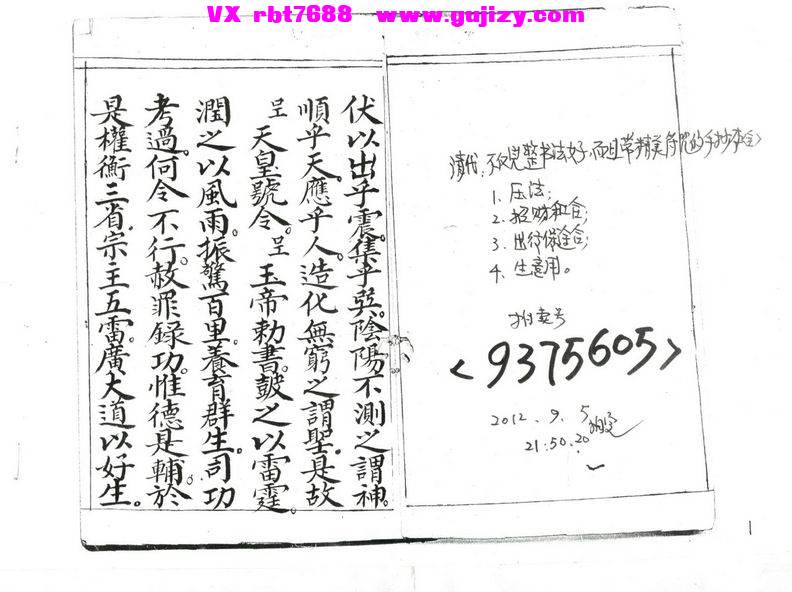 VX rbt7688 www.gujizy.com
伏以出乎震。集乎巽。陰陽不測之謂神。
順乎天。應乎人。造化無窮之謂聖。是故
呈 天皇號令。呈 玉帝勅書。鼓之以雷霆。
潤之以風雨。振驚百里。養育群生。司功
考過。何令不行。赦罪錄功。惟德是輔。於
是權衡三省。宗主五雷。廣大道以好生。
清代,不仅完整书法好,而且带精美符咒的手抄本
1. 压法;
2. 招财和合;
3. 出行保
4. 生意用。
拍卖号
<9375605>
2012.9.5
21:50.20
1